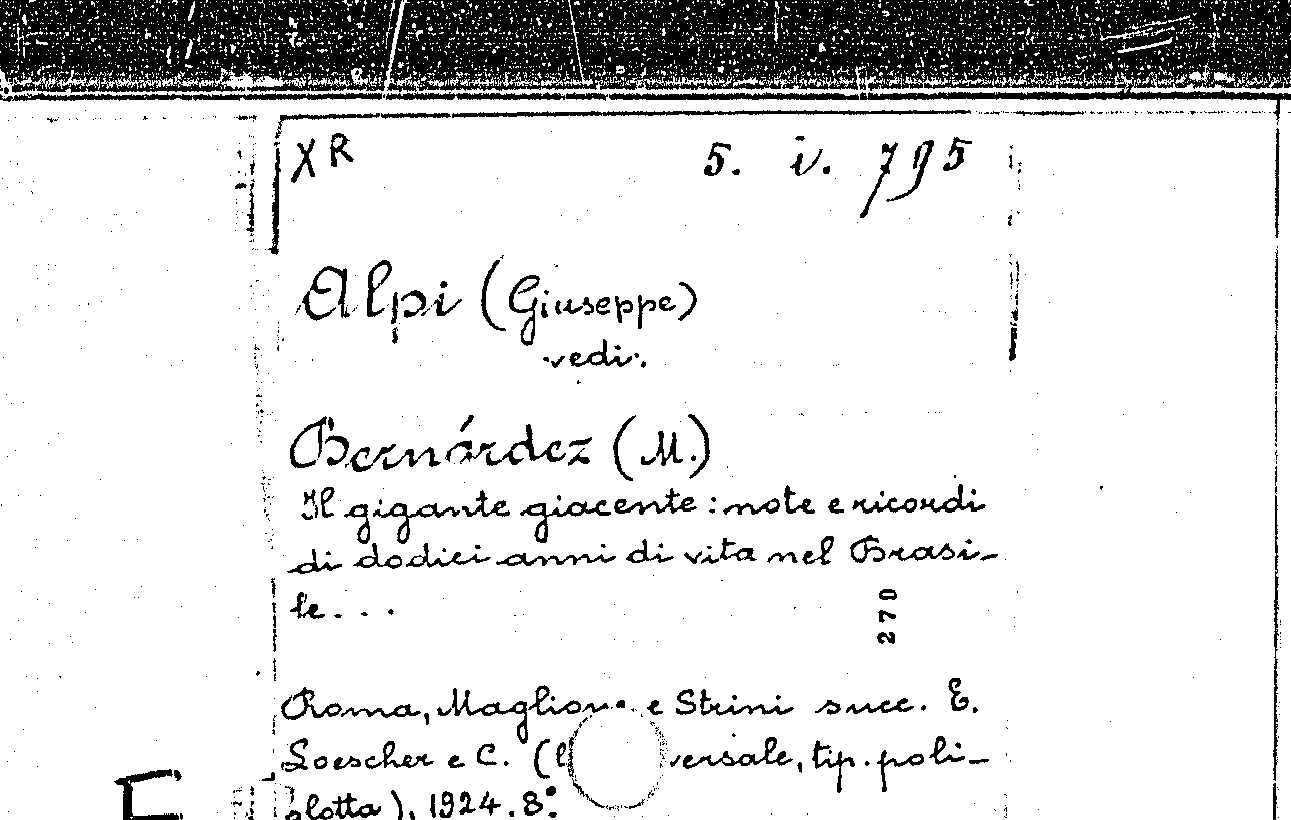 XR 5. i. 795
Alpi (Giuseppe)
vedi:
Bernárdez (M.)
Il gigante giacente: note e ricordi
di dodici anni di vita nel Brasi-
le...
270
Roma, Maglione e Strini succ. E.
Loescher e C. ( versale, tip. poli-
glotta), 1924. 8°.